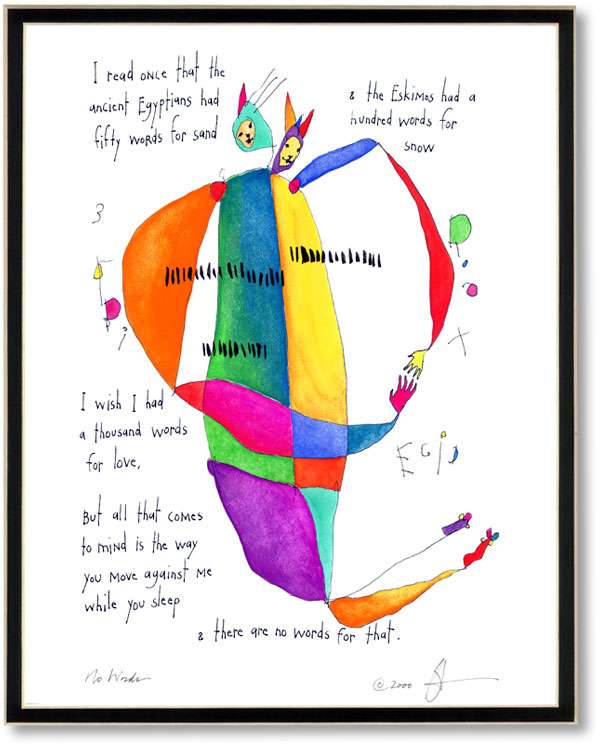 I read once that the
ancient Egyptians had
fifty words for sand
& the Eskimos had a
hundred words for
snow
I wish I had
a thousand words
for love,
But all that comes
to mind is the way
you move against me
while you sleep
& there are no words for that.
No Words
© 2000